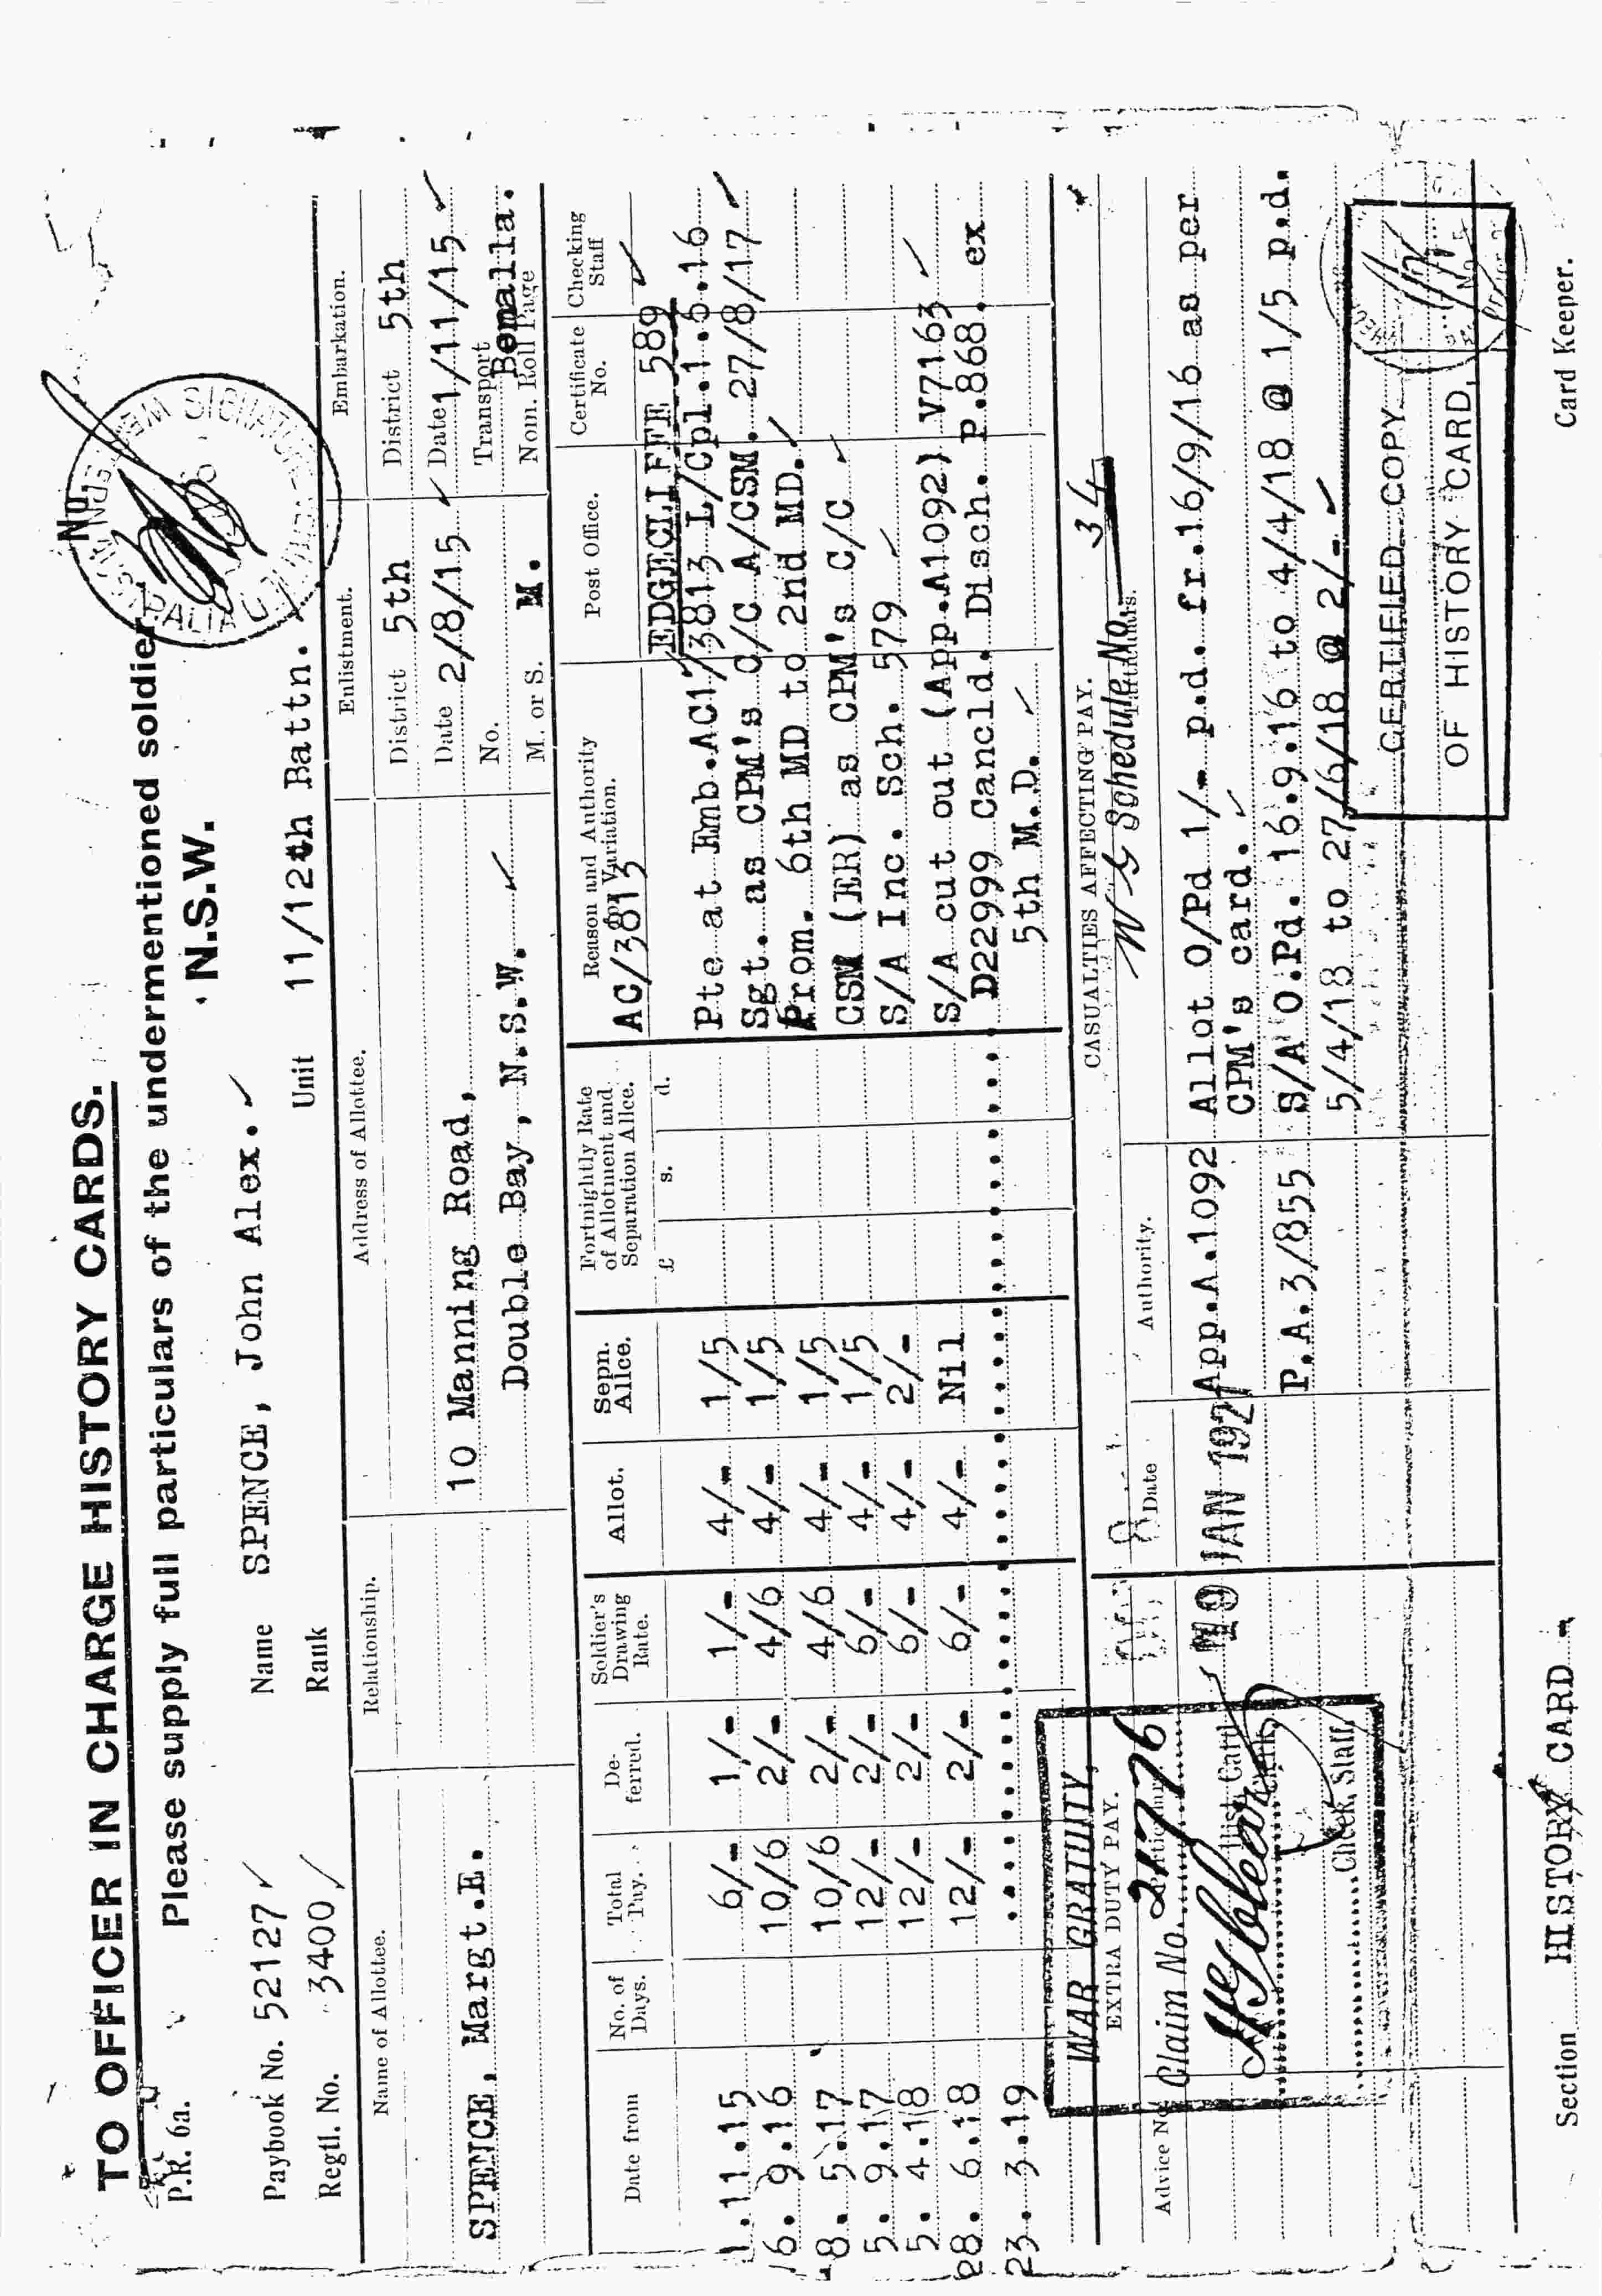 TO OFFICER IN CHARGE HISTORY CARDS.
No.
P.R. 6a.
Please supply full particulars of the undermentioned soldier.
N.S.W.
Paybook No. 52127
Name SPENCE, John Alex.
Regtl. No. 3400
Rank
Unit 11/12th Battn.
Name of Allottee.
Relationship.
Address of Allottee.
Enlistment.
Embarkation.
SPENCE, Margt.E.
10 Manning Road,
Double Bay, N.S.W.
District 5th
Date 2/8/15
No.
M. or S. M.
District 5th
Date 1/11/15
Transport Benalla.
Nom. Roll Page
Date from
No. of Days.
Total Pay.
De-ferred.
Soldier's Drawing Rate.
Allot.
Sepn. Allce.
Fortnightly Rate of Allotment and Separation Allce.
£ s. d.
Reason and Authority for Variation.
Post Office.
Certificate No.
Checking Staff
AC/3813 EDGECLIFFE 589
1.11.15 6/- 1/- 1/- 4/- 1/5 Pte at Emb.AC17/3813 L/Cpl.1.6.16
6. 9.16 10/6 2/- 4/6 4/- 1/5 Sgt. as CPM's C/C A/CSM. 27/8/17
8. 5.17 10/6 2/- 4/6 4/- 1/5 Prom. 6th MD to 2nd MD.
5. 9.17 12/- 2/- 6/- 4/- 1/5 CSM (ER) as CPM's C/C
5. 4.18 12/- 2/- 6/- 4/- 2/- S/A Inc. Sch. 579
28. 6.18 12/- 2/- 6/- 4/- Nil S/A cut out (App.A1092) V7163
23. 3.19 D22999 Cancld. Disch. P.868. ex
5th M.D.
WAR GRATUITY,
EXTRA DUTY PAY.
CASUALTIES AFFECTING PAY.
W G Schedule No. 34
Advice No.
Claim No. 2176
Date
Authority.
Hist. Card Clerk,
Check, Staff,
JAN 1921
App.A.1092 Allot O/Pd 1/- p.d. fr.16/9/16 as per
CPM's card.
P.A.3/855 S/A O.Pd. 16.9.16 to 4/4/18 @ 1/5 p.d.
5/4/18 to 27/6/18 @ 2/-
CERTIFIED COPY
OF HISTORY CARD,
Section HISTORY CARD
Card Keeper.